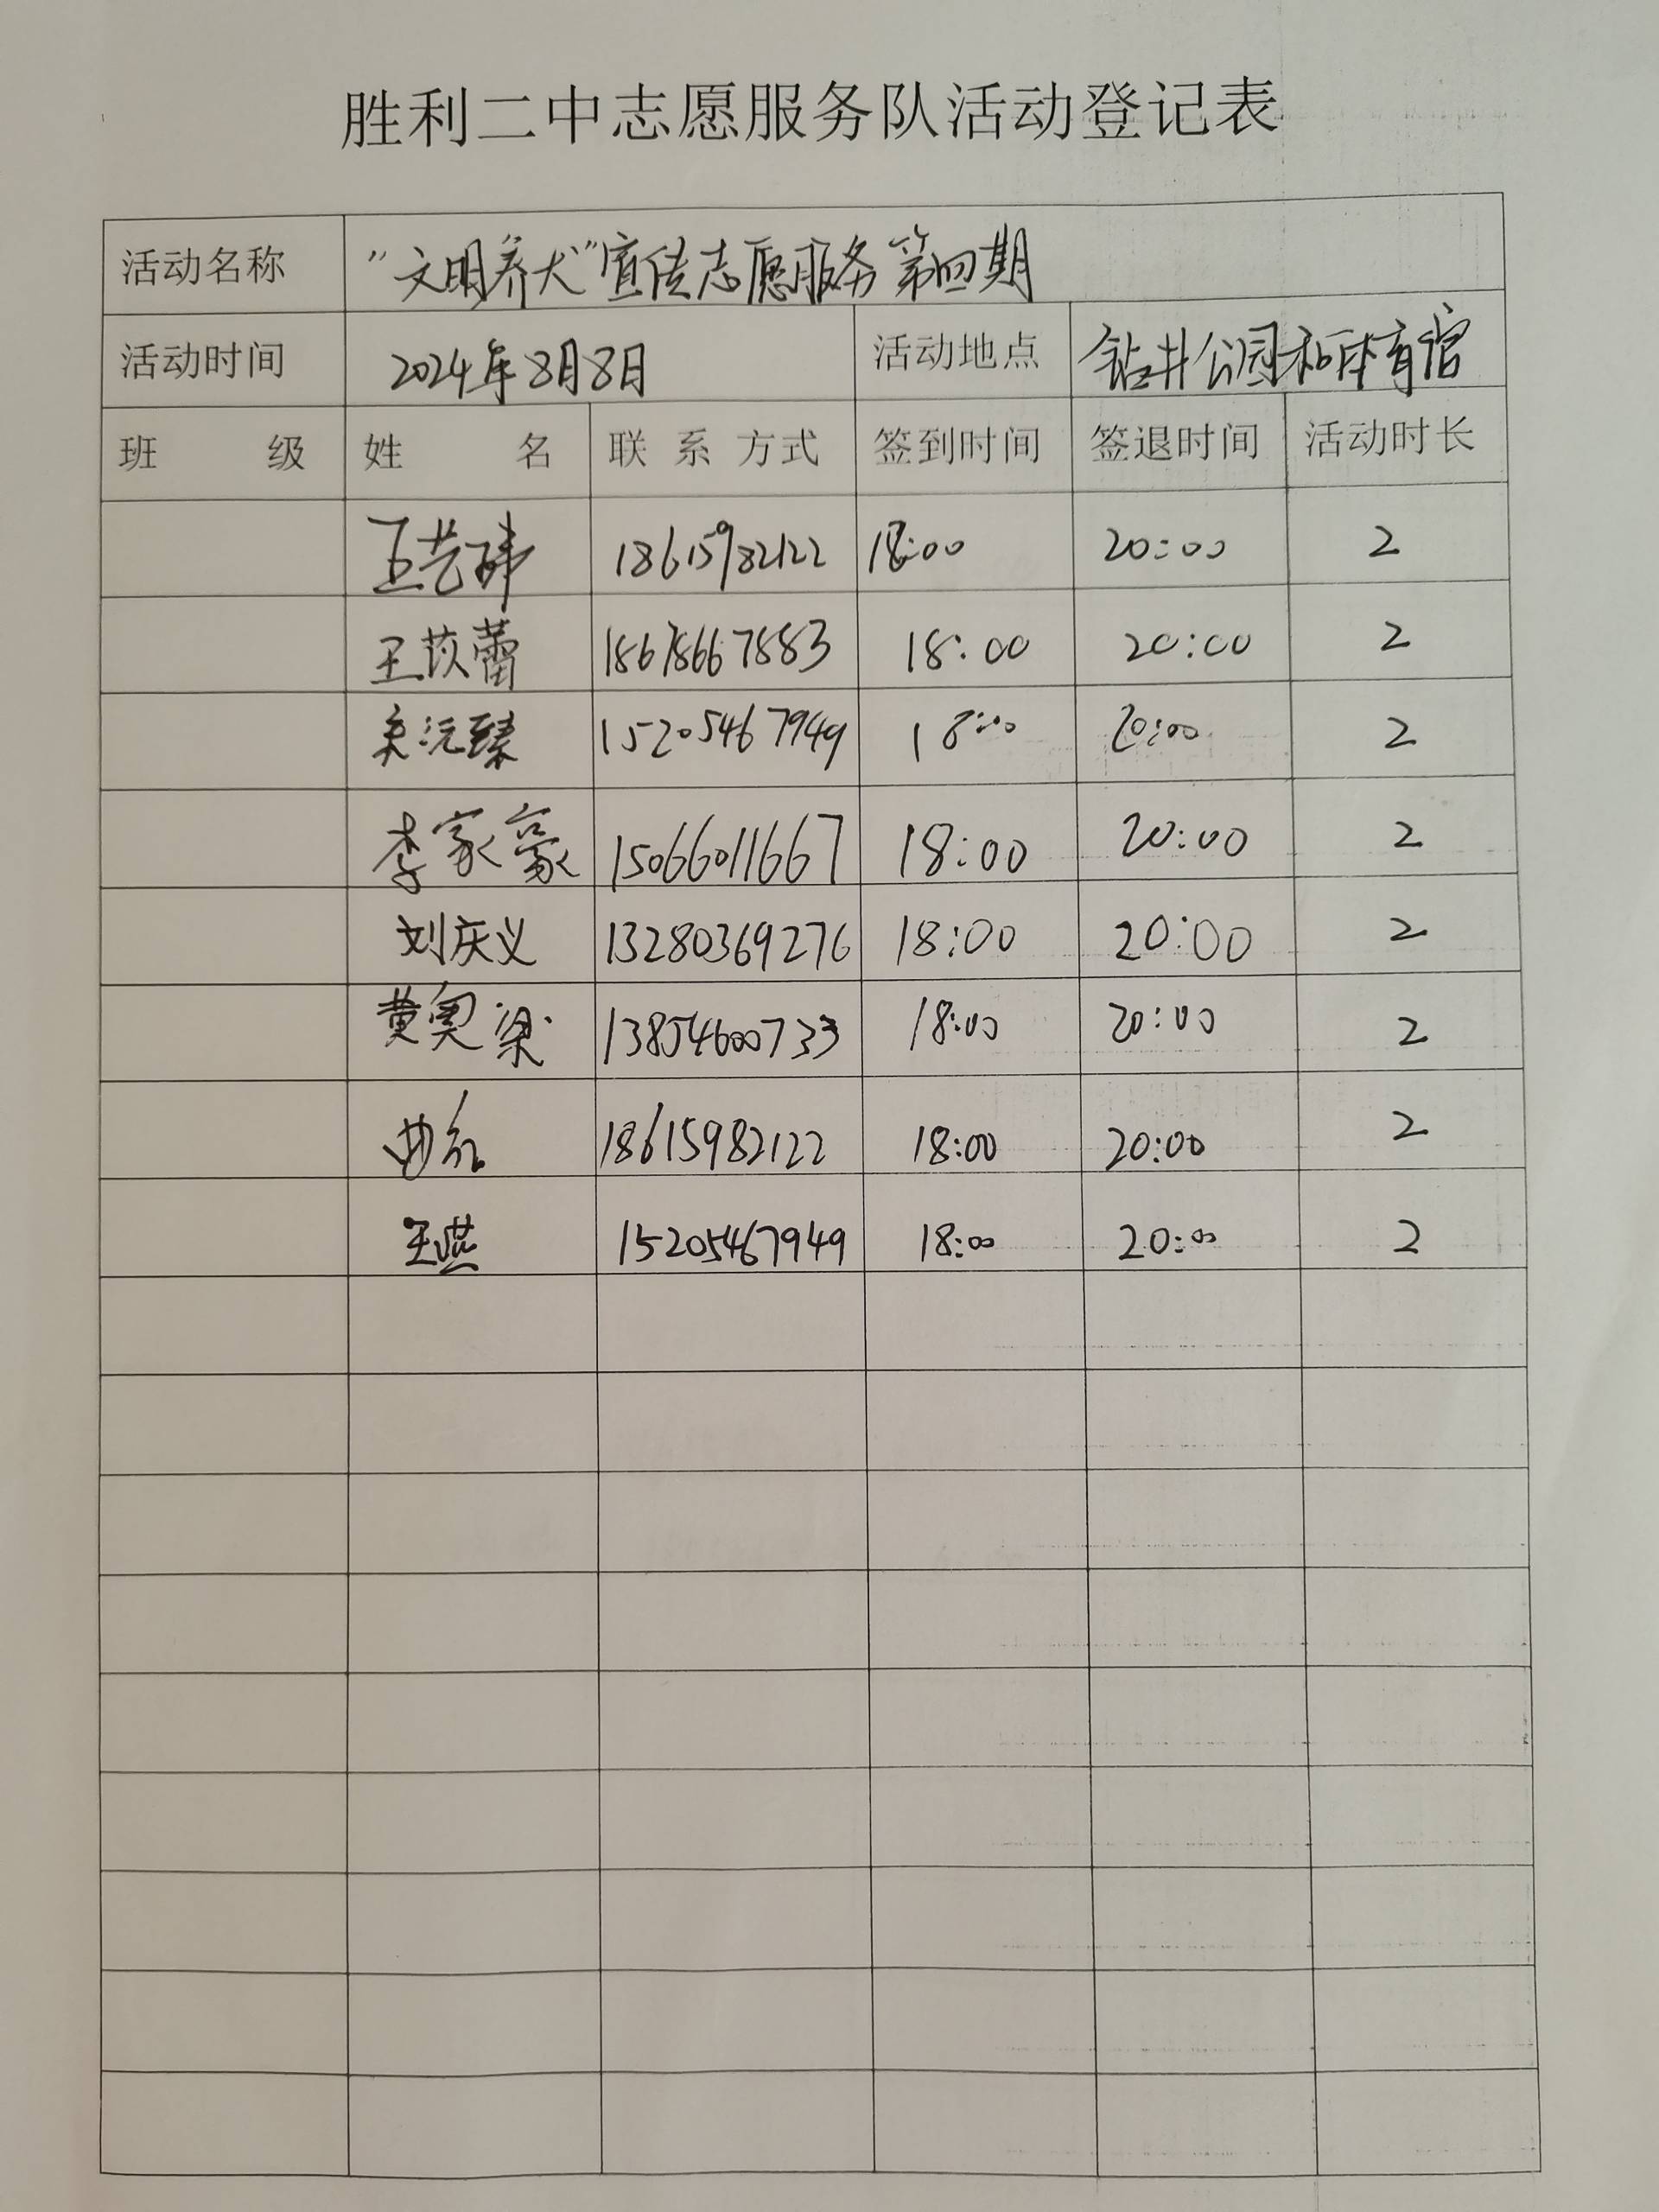 胜利二中志愿服务队活动登记表
活动名称 "文明养犬"宣传志愿服务第四期
活动时间 2024年8月8日 活动地点 钻井公园和体育馆
班 级 姓 名 联 系 方式 签到时间 签退时间 活动时长
18615982122 18:00 20:00 2
王苡蕾 18678667883 18:00 20:00 2
15205467949 18:00 20:00 2
李家豪 15066011667 18:00 20:00 2
刘庆义 13280369276 18:00 20:00 2
黄奥梁 13854600733 18:00 20:00 2
18615982122 18:00 20:00 2
王燕 15205467949 18:00 20:00 2